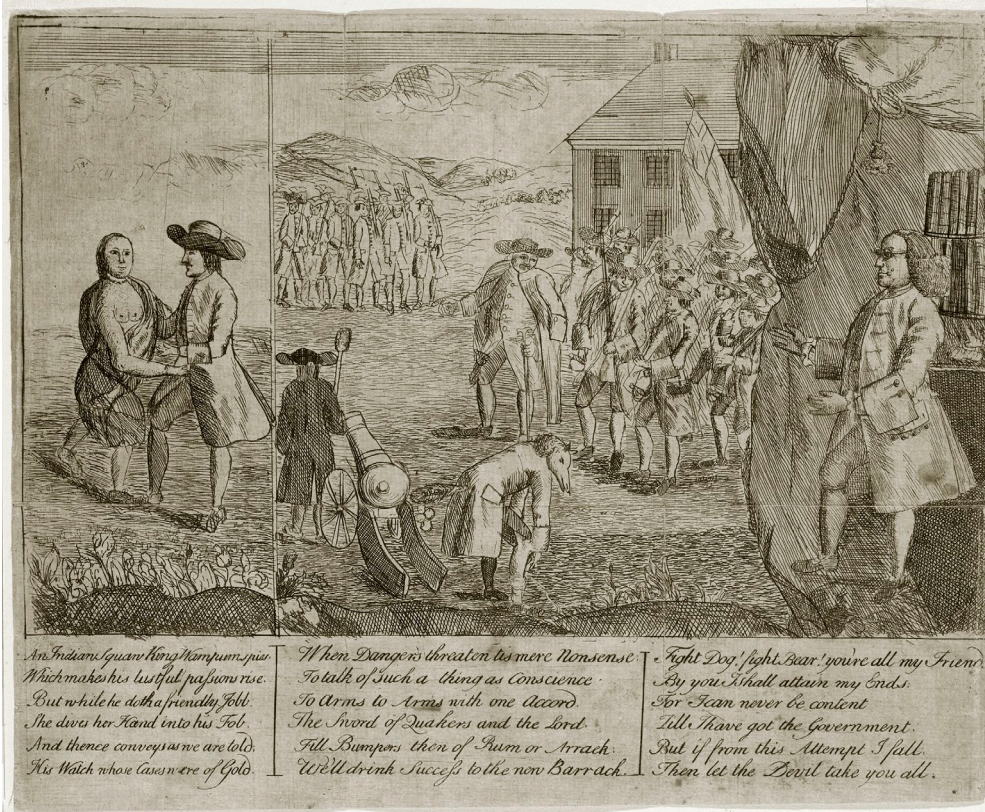 An Indian Squaw King Wampum spies
Which makes his lustful passions rise.
But while he doth a friendly Jobb
She dives her Hand into his Fob
And thence conveys as we are told,
His Watch whose Cases were of Gold.
When Dangers threaten tis mere Nonsense
To talk of Such a thing as Conscience
To Arms to Arms with one Accord
The Sword of Quakers and the Lord
Fill Bumpers then of Rum or Arrack
We'll drink Success to the new Barrack
Fight Dog! fight Bear! you're all my Friend
By you I shall attain my Ends.
For I can never be content
Till I have got the Government.
But if from this Attempt I fall.
Then let the Devil take you all.